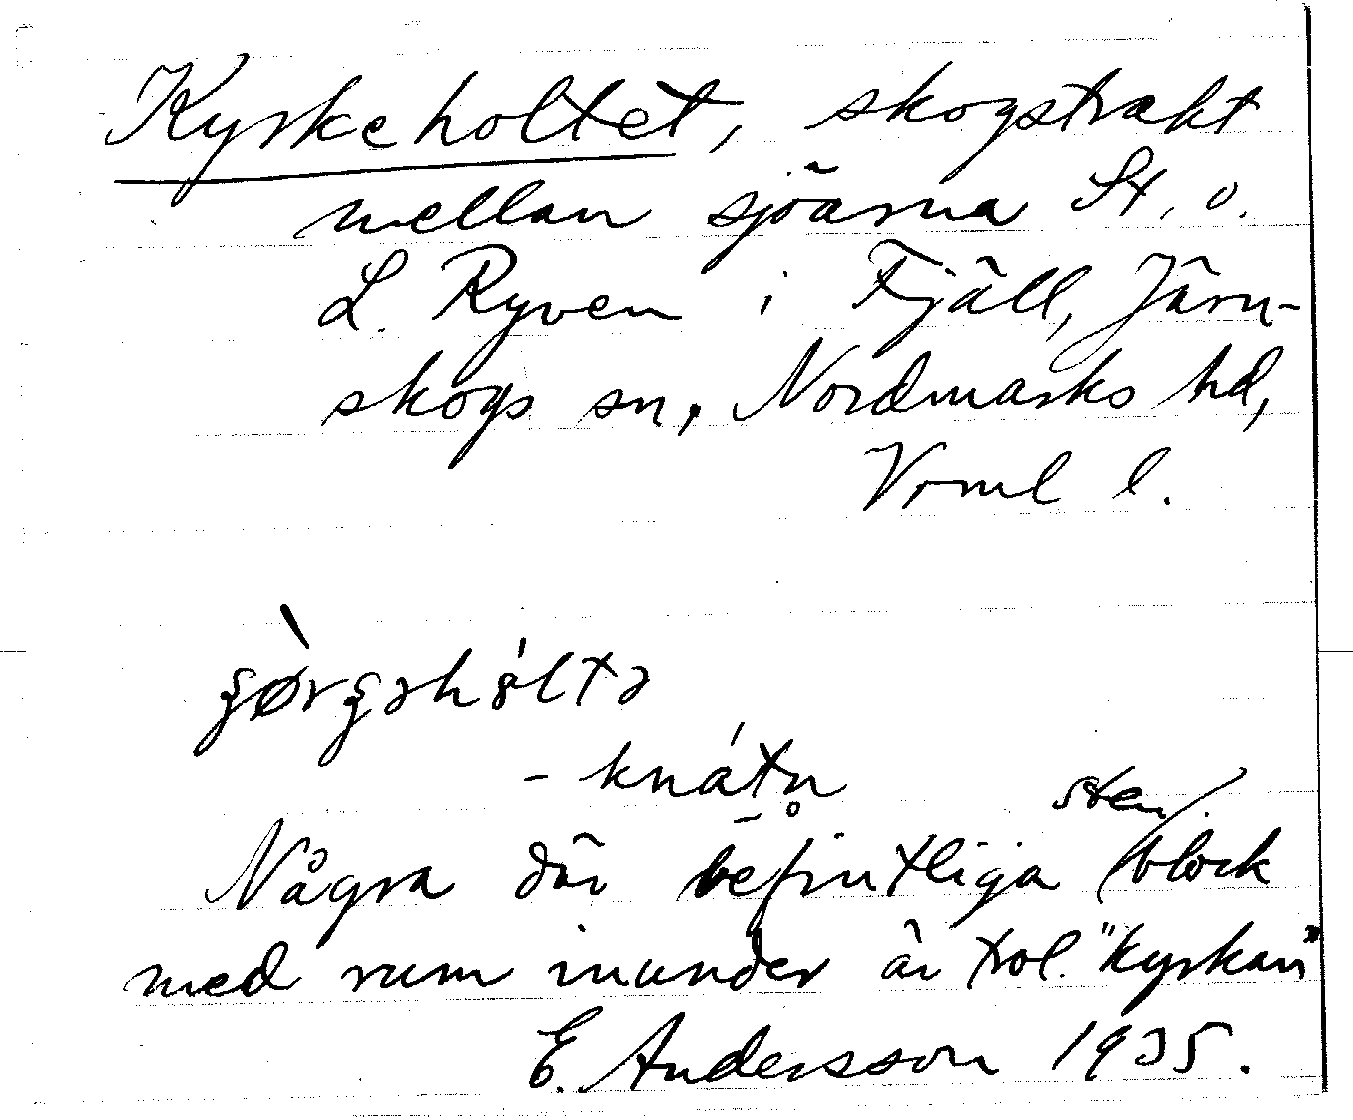 Kyrkeholtet, skogstrakt
mellan sjöarna St. o.
L. Ryven i Fjäll, Järn-
skogs sn, Nordmarks hd,
Vrml l.
- knátn̥
sten
Några där befintliga block
med rum inunder är trol. "Kyrkan"
E. Andersson 1935.